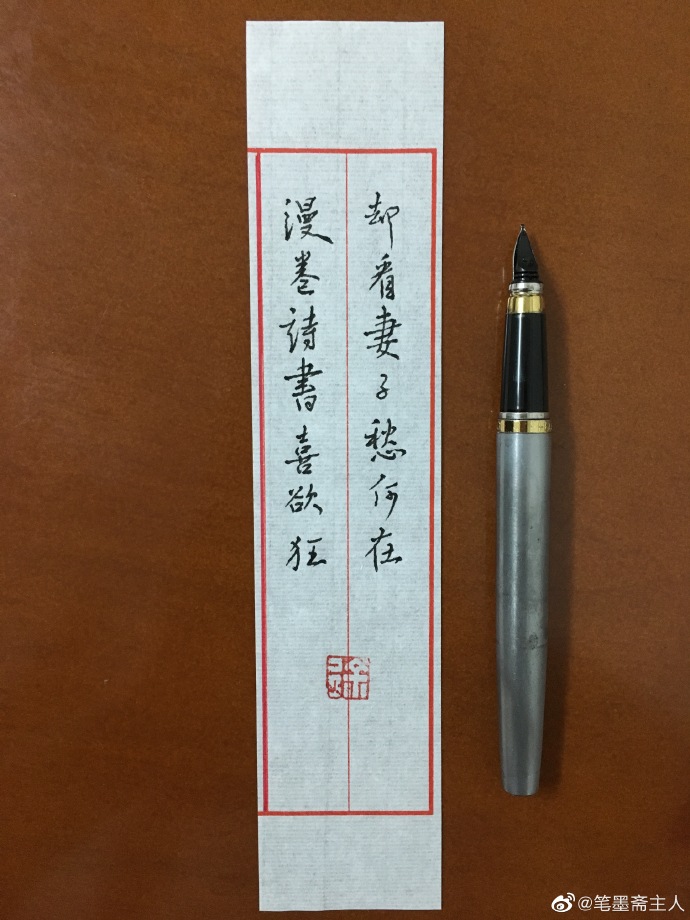 却看妻子愁何在
漫卷詩書喜欲狂
@笔墨斋主人